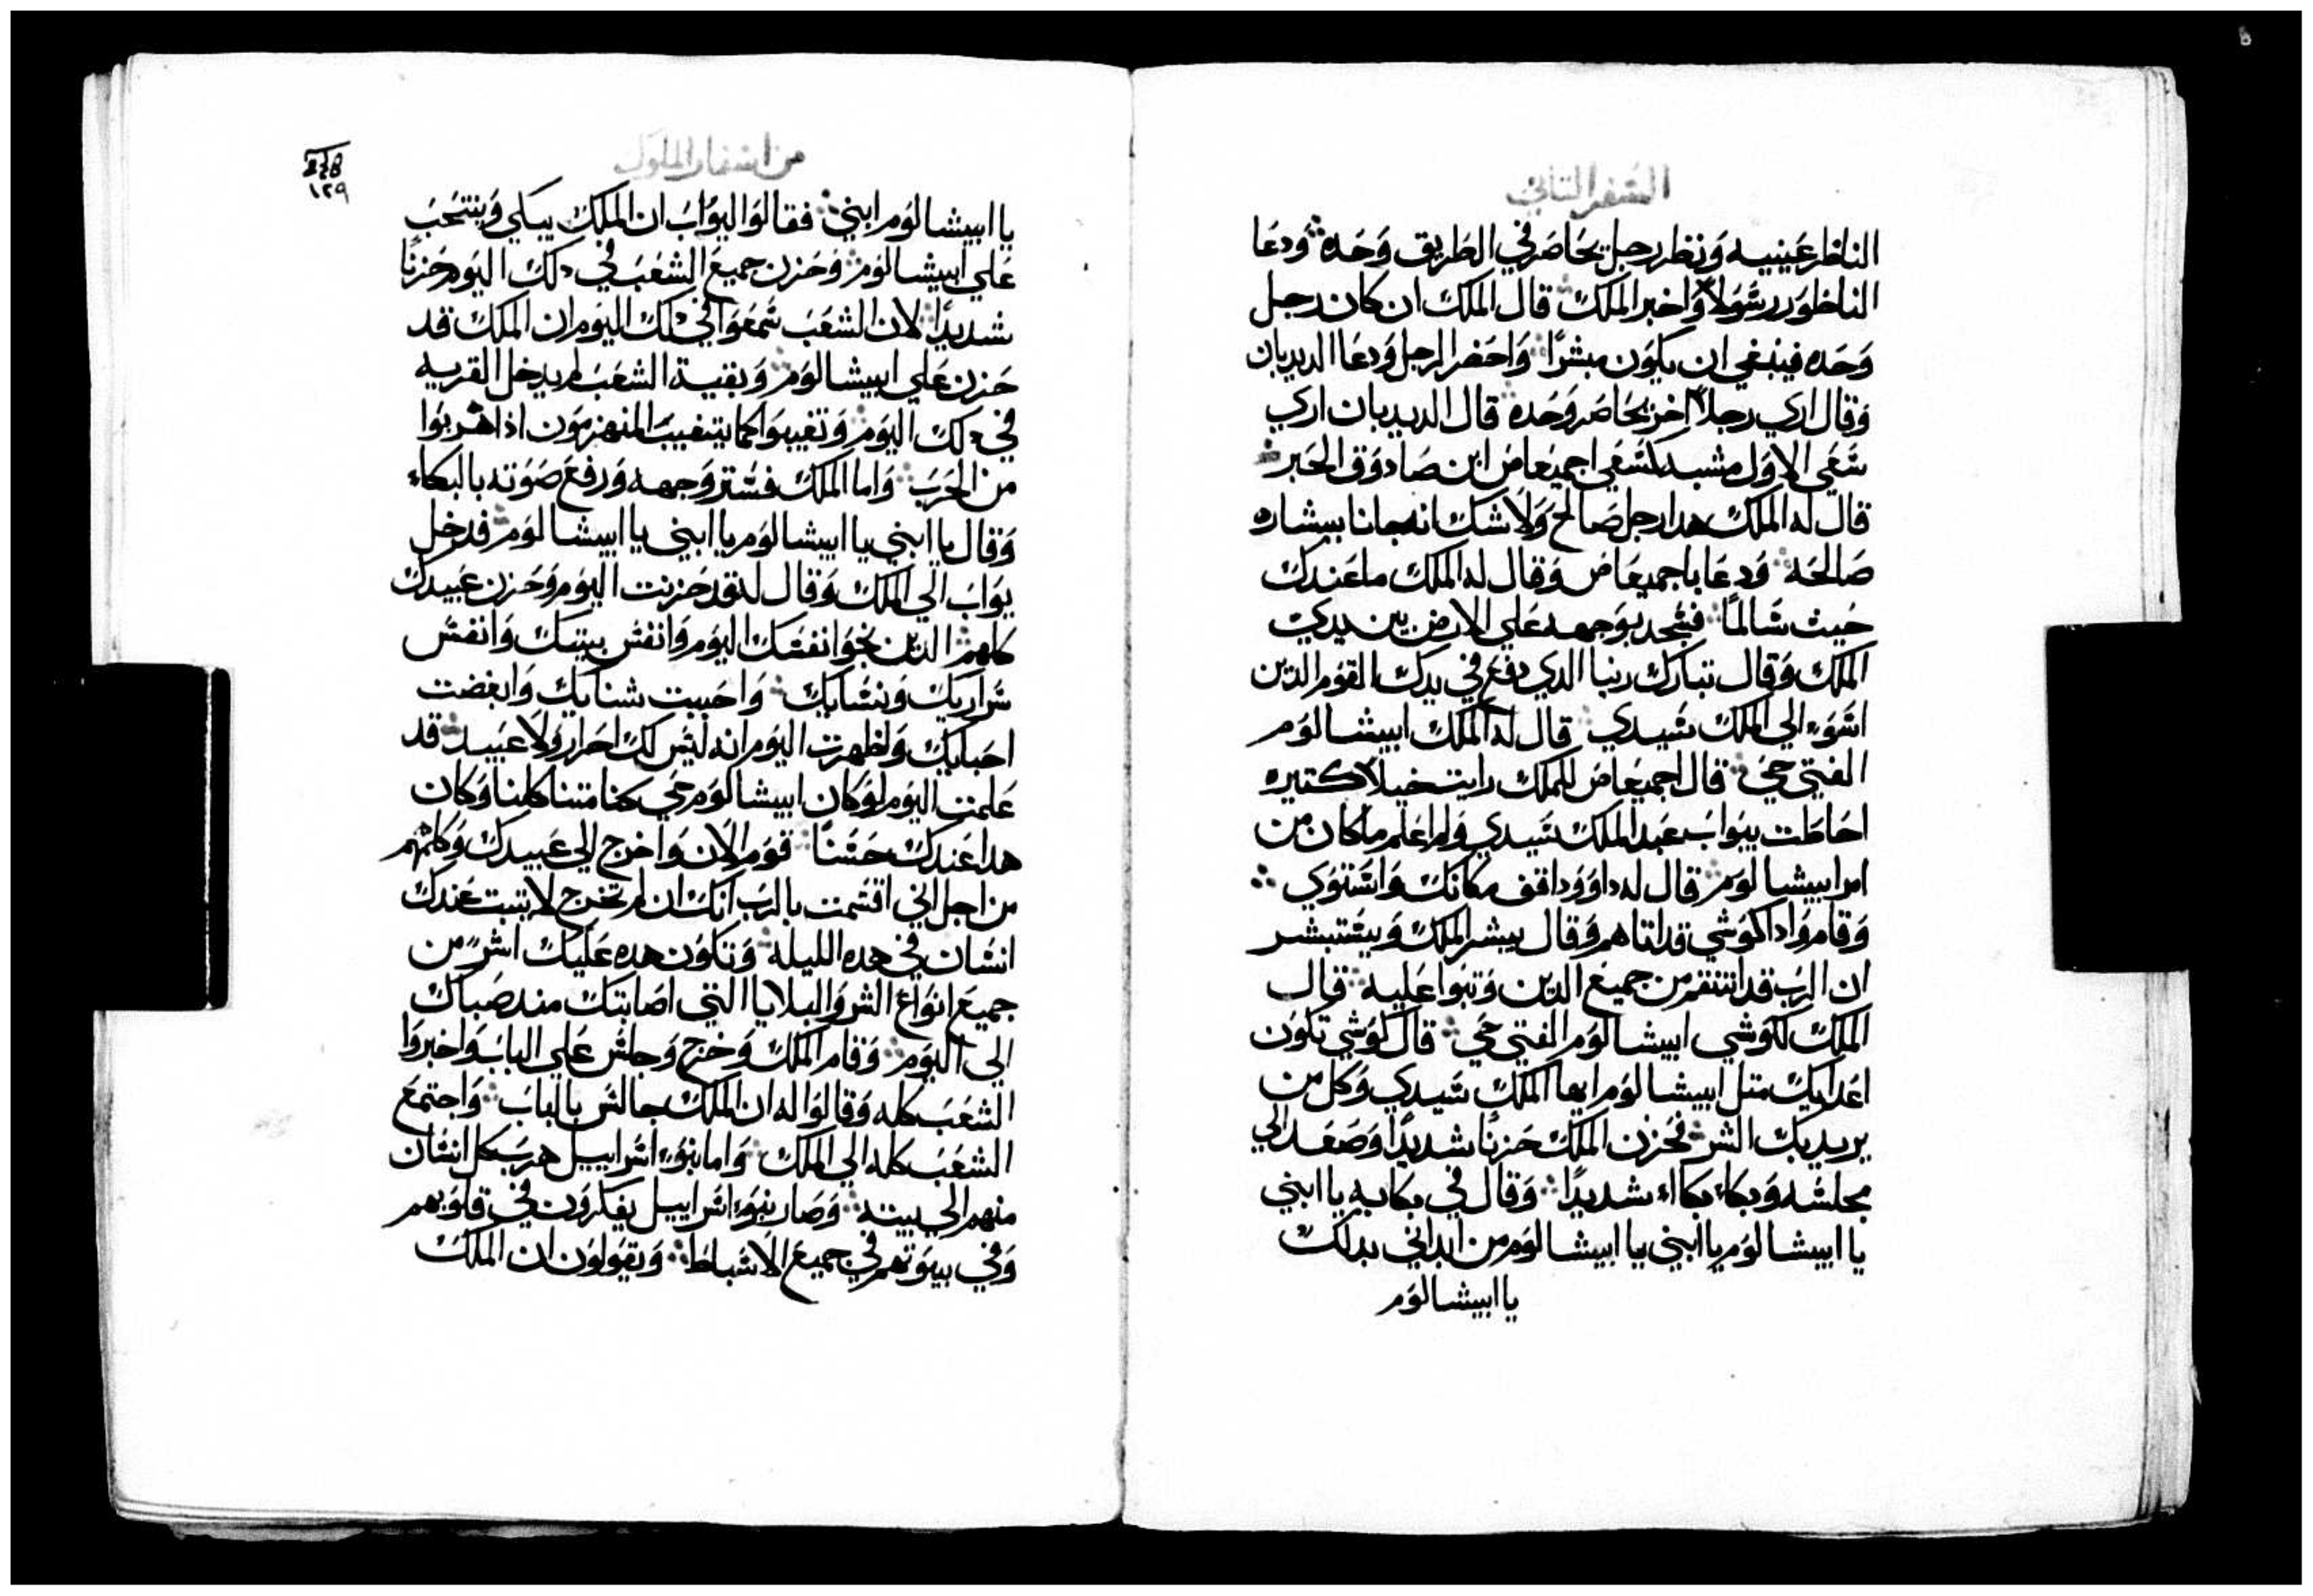 السفر التاني
الناظر عينيه ونظر رجل يحاصر في الطريق وحده ودعا
الناظور رسولا واخبر الملك قال الملك ان كان رجل
وحده فينبغي ان يكون مبشرا واحضر الرجل ودعا الديدبان
وقال اري رجلا اخر يحاصر وحده قال الديدبان اري
سعي الاول مشبه لسعي اجميعاص ابن صادوق الحبر
قال له الملك هدا رجل صالح ولا شك انه جانا ببشاره
صالحه ودعا باجميعاص وقال له الملك ما عندك
حيث سالما فسجد بوجهه علي الارض بين يدي
الملك وقال تبارك ربنا الدي دفع في يدك القوم الدين
اسوء الي الملك سيدي قال له الملك ابيشالوم
الفتي حي قال اجميعاص للملك رايت خيلا كتيره
احاطت بيواب عبد الملك سيدي ولم اعلم ما كان من
امر ابيشالوم قال له داوود اقف مكانك واستوي
وقاموا دا كوشي قد اتاهم وقال يبشر الملك ويستبشر
ان الرب قد انتقم من جميع الدين وتبوا عليه قال
الملك لكوشي ابيشالوم الفتي حي قال كوشي تكون
اعدايك متل ابيشالوم ايها الملك سيدي وكل من
يريد بك الشر فحزن الملك حزنا شديدا وصعد الي
مجلسه وبكاء بكاء شديدا وقال في بكايه يا ابني
يا ابيشالوم يا ابني يا ابيشالوم من ابداني بدلك
يا ابيشالوم
من اسفار الملوك
238
١٢٩
يا ابيشالوم ابني فقالوا ليواب ان الملك يبكي وينتحب
علي ابيشالوم وحزن جميع الشعب في دلك اليوم حزنا
شديدا لان الشعب سمعوا في دلك اليوم ان الملك قد
حزن علي ابيشالوم وبقية الشعب لم يدخل القريه
في دلك اليوم وتغيبوا كما يتغيب المنهزمون ادا هربوا
من الحرب واما الملك فستر وجهه ورفع صوته بالبكاء
وقال يا ابني يا ابيشالوم يا ابني يا ابيشالوم فدخل
يواب الي الملك وقال له قد حزنت اليوم وحزن عبيدك
كلهم الدين نجوا نفسك اليوم وانفس بيتك وانفس
سراريك ونسايك واحببت شنايك وابغضت
احبايك ولظهرت اليوم انه ليس لك احرار ولا عبيد قد
علمت اليوم لو كان ابيشالوم حي كنا متنا كلنا وكان
هدا عندك حسنا قوم الان واخرج الي عبيدك وكلمهم
من اجل اني اقسمت بالرب انك ان لم تخرج لا يتبت عندك
انسان في هده الليله وتكون هده عليك اشر من
جميع انواع الشر والبلايا التي اصابتك مند صباك
الي اليوم وقام الملك وخرج وجلس علي الباب واخبروا
الشعب كله وقالوا له ان الملك جالس بالباب واجتمع
الشعب كله الي الملك واما بنوء اسراييل هرب كل انسان
منهم الي بيته وصار بنوء اسراييل يفكرون في قلوبهم
وفي بيوتهم في جميع الاسباط ويقولون ان الملك